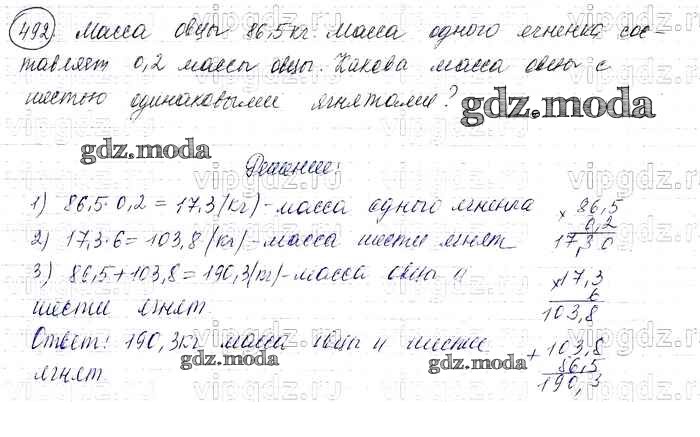 492 Масса овцы 86,5 кг. Масса одного ягненка сос-
тавляет 0,2 массы овцы. Какова масса овцы с
шестью одинаковыми ягнятами?
gdz.moda
gdz.moda
Решение:
1) 86,5·0,2=17,3(кг)-масса одного ягненка
2) 17,3·6=103,8(кг)-масса шести ягнят
3) 86,5+103,8=190,3(кг)-масса овцы и
шести ягнят.
Ответ: 190,3кг масса овцы и шести
ягнят.
gdz.moda
gdz.moda
× 86,5
0,2
17,30
×17,3
6
103,8
+103,8
86,5
190,3
vipgdz.ru